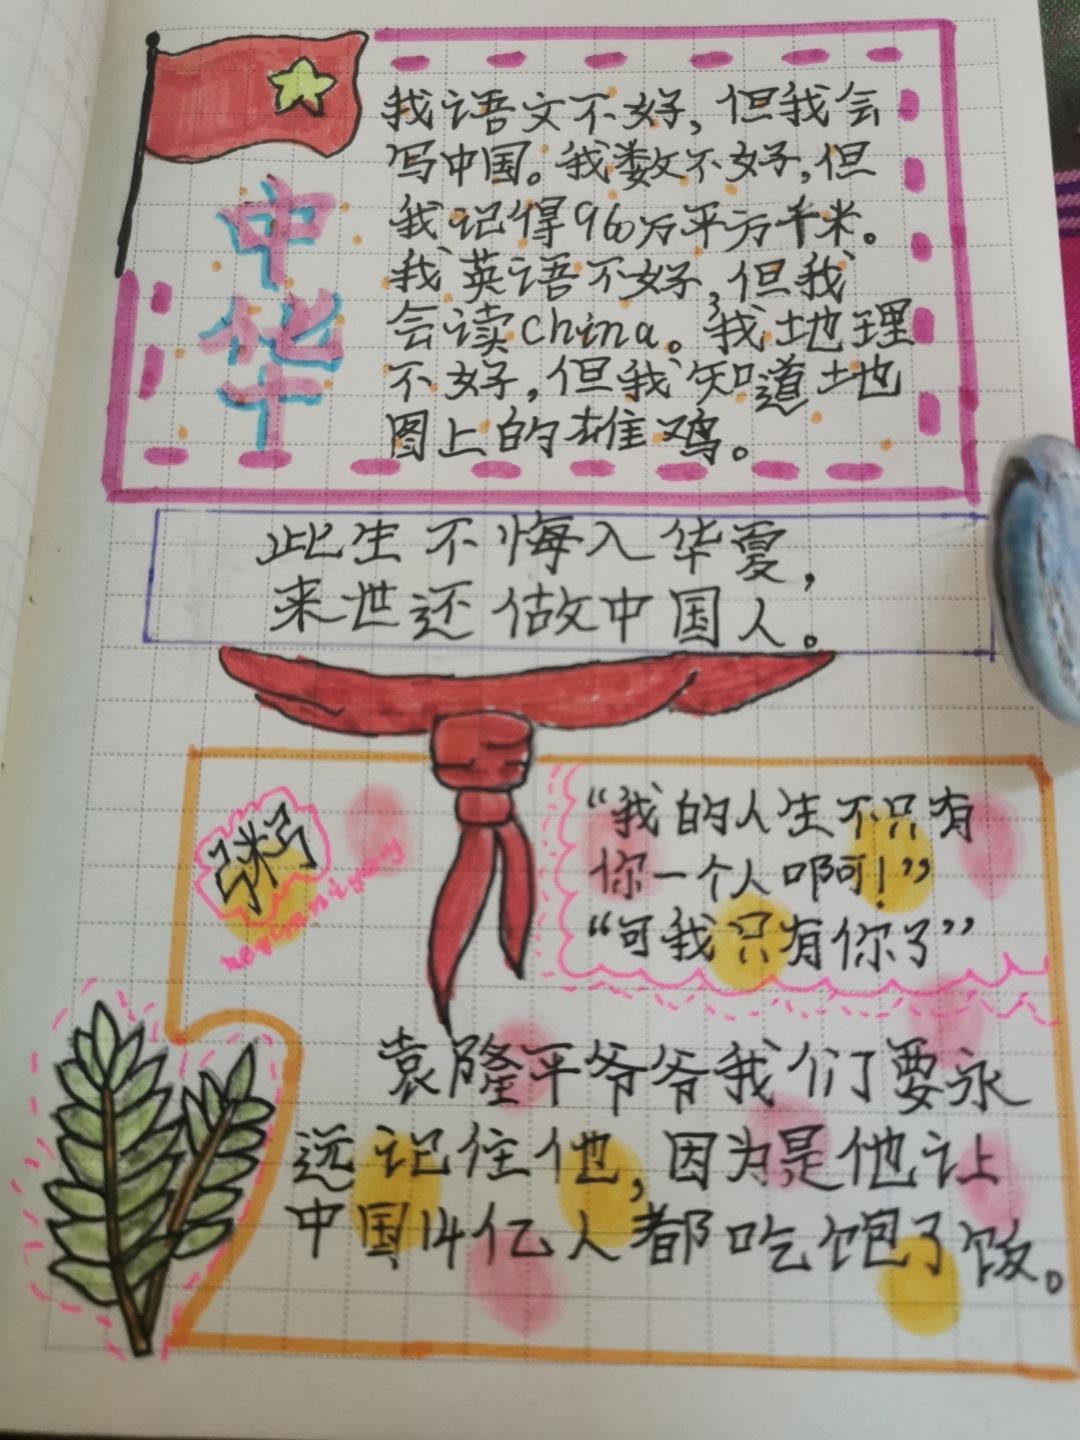 中
华
我语文不好，但我会
写中国。我数不好，但
我记得960万平方千米。
我英语不好，但我
会读china。我地理
不好，但我知道地
图上的雄鸡。
此生不悔入华夏，
来世还做中国人。
粥
“我的人生不只有
你一个人啊！”
“可我只有你了”
袁隆平爷爷我们要永
远记住他，因为是他让
中国14亿人都吃饱了饭。